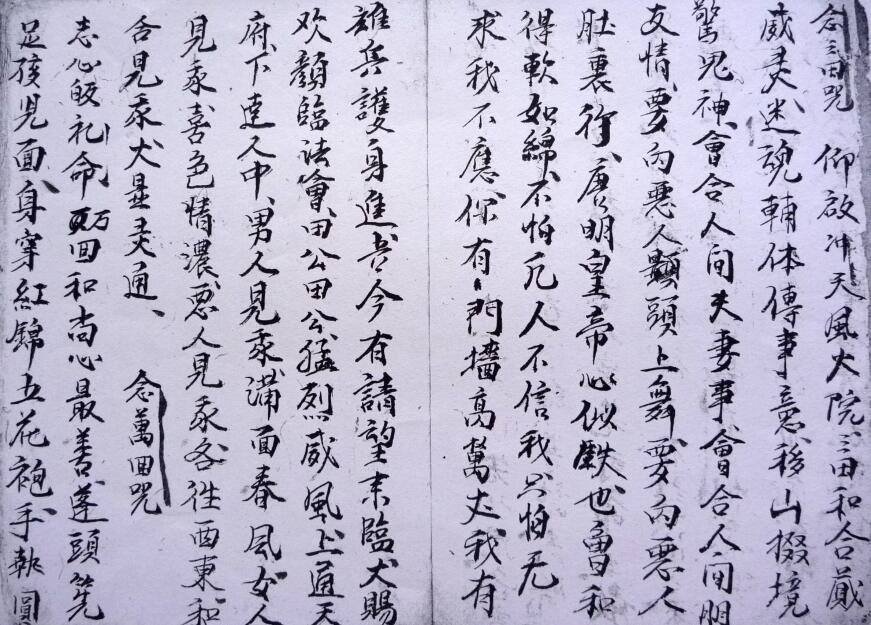 念三田咒 仰啟冲天風火院三田和合
威灵迷魂輔体傳事意移山掇境
驚児神會合人间夫妻事會合人间朋
友情要向惡人顛頭上舞要向惡人
肚裏行唐明皇帝心似鉄也會和
得軟如綿不怕凡人不信我只怕无
求我不應你有門墻高萬丈我有
雄兵護身進吾今有請望来臨犬賜
欢顏臨法會田公田公猛烈威風上通天
府下達人中男人見我满面春風女人
見我喜色情濃惡人見我各徃西東和
合見我犬显灵通
念萬回咒
志心皈礼命萬回和尚心最善蓬頭
足孩児面身穿紅錦五花袍手執圓